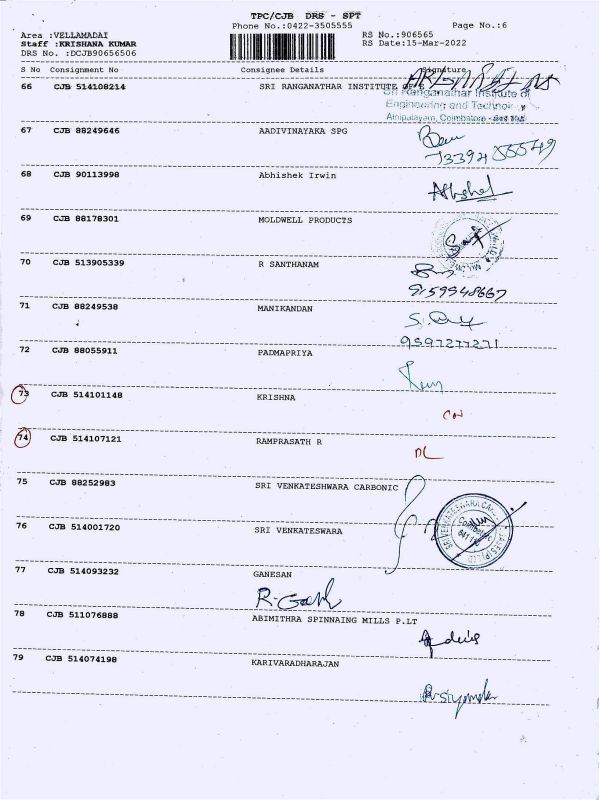 TPC/CJB DRS - SPT
Phone No.:0422-3505555 Page No.:6
Area :VELLAMADAI RS No.:906565
Staff :KRISHANA KUMAR RS Date:15-Mar-2022
DRS No. :DCJB90656506
S No Consignment No Consignee Details Signature
66 CJB 514108214 SRI RANGANATHAR INSTITUTE OF
Sri Ranganathar Institute of
Engineering and Technology
Athipalayam, Coimbatore
67 CJB 88249646 AADIVINAYAKA SPG
68 CJB 90113998 Abhishek Irwin
69 CJB 88178301 MOLDWELL PRODUCTS
70 CJB 513905339 R SANTHANAM
9159948667
71 CJB 88249538 MANIKANDAN
9597277271
72 CJB 88055911 PADMAPRIYA
73 CJB 514101148 KRISHNA
74 CJB 514107121 RAMPRASATH R
DL
75 CJB 88252983 SRI VENKATESHWARA CARBONIC
76 CJB 514001720 SRI VENKATESWARA
77 CJB 514093232 GANESAN
78 CJB 511076888 ABIMITHRA SPINNAING MILLS P.LT
79 CJB 514074198 KARIVARADHARAJAN